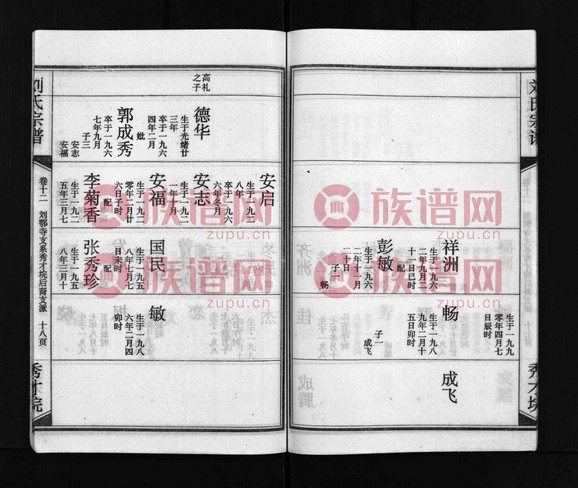 刘氏宗谱
卷十二
刘鄂寺支系秀才垸后裔支派
十八页
秀才垸
高礼
之子
德华
生于光绪廿
三年
卒于一九六
四年二月
妣
郭成秀
卒于一九六
七年九月
子三
安志
安福
安启
生于一九二
八年
卒于一九六
六年冬月
安志
生于一九二
一年十月
安福
生于一九二
零年十月廿
六日子时
配
李菊香
生于一九二
五年三月七
国民
生于一九五
八年七月七
日未时
配
张秀珍
生于一九五
八年三月十
敏
生于一九八
六年二月四
卯时
祥洲
生于一九六
二年九月二
十一日已时
配
彭敏
生于一九六
二年十一月
二十日
子一
畅
生于一九九
零年四月七
日辰时
畅
生于一九八
九年二月十
五日卯时
子一
成飞
成飞
族谱网
zupu.cn